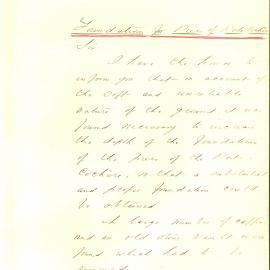 Foundation for Piers of
Sir
I have the honor to
inform you that on account of
the soft and unreliable
nature of the ground it was
found necessary to increase
the depth of the foundations
of the piers of the
so that a substantial
and proper foundation could
be obtained
A large number of coffins
and an old stone vault were
found which had to be
removed